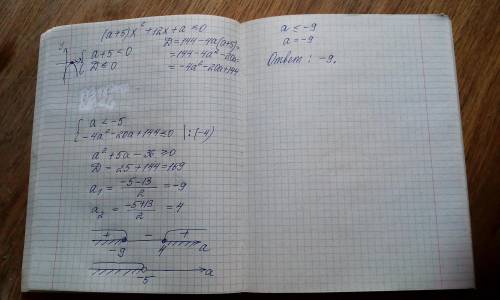 (a+5)x²+12x+a ≤0
y
{a+5<0
D≤0
D=144-4a(a+5)=
=144-4a²-20a=
=-4a²-20a+144
{a<-5
-4a²-20a+144≤0 |:(-4)
a²+5a-36≥0
D=25+144=169
a₁=(-5-13)/2=-9
a₂=(-5+13)/2=4
+ - +
-9 4 a
-5 a
a≤-9
a=-9
Ответ: -9.